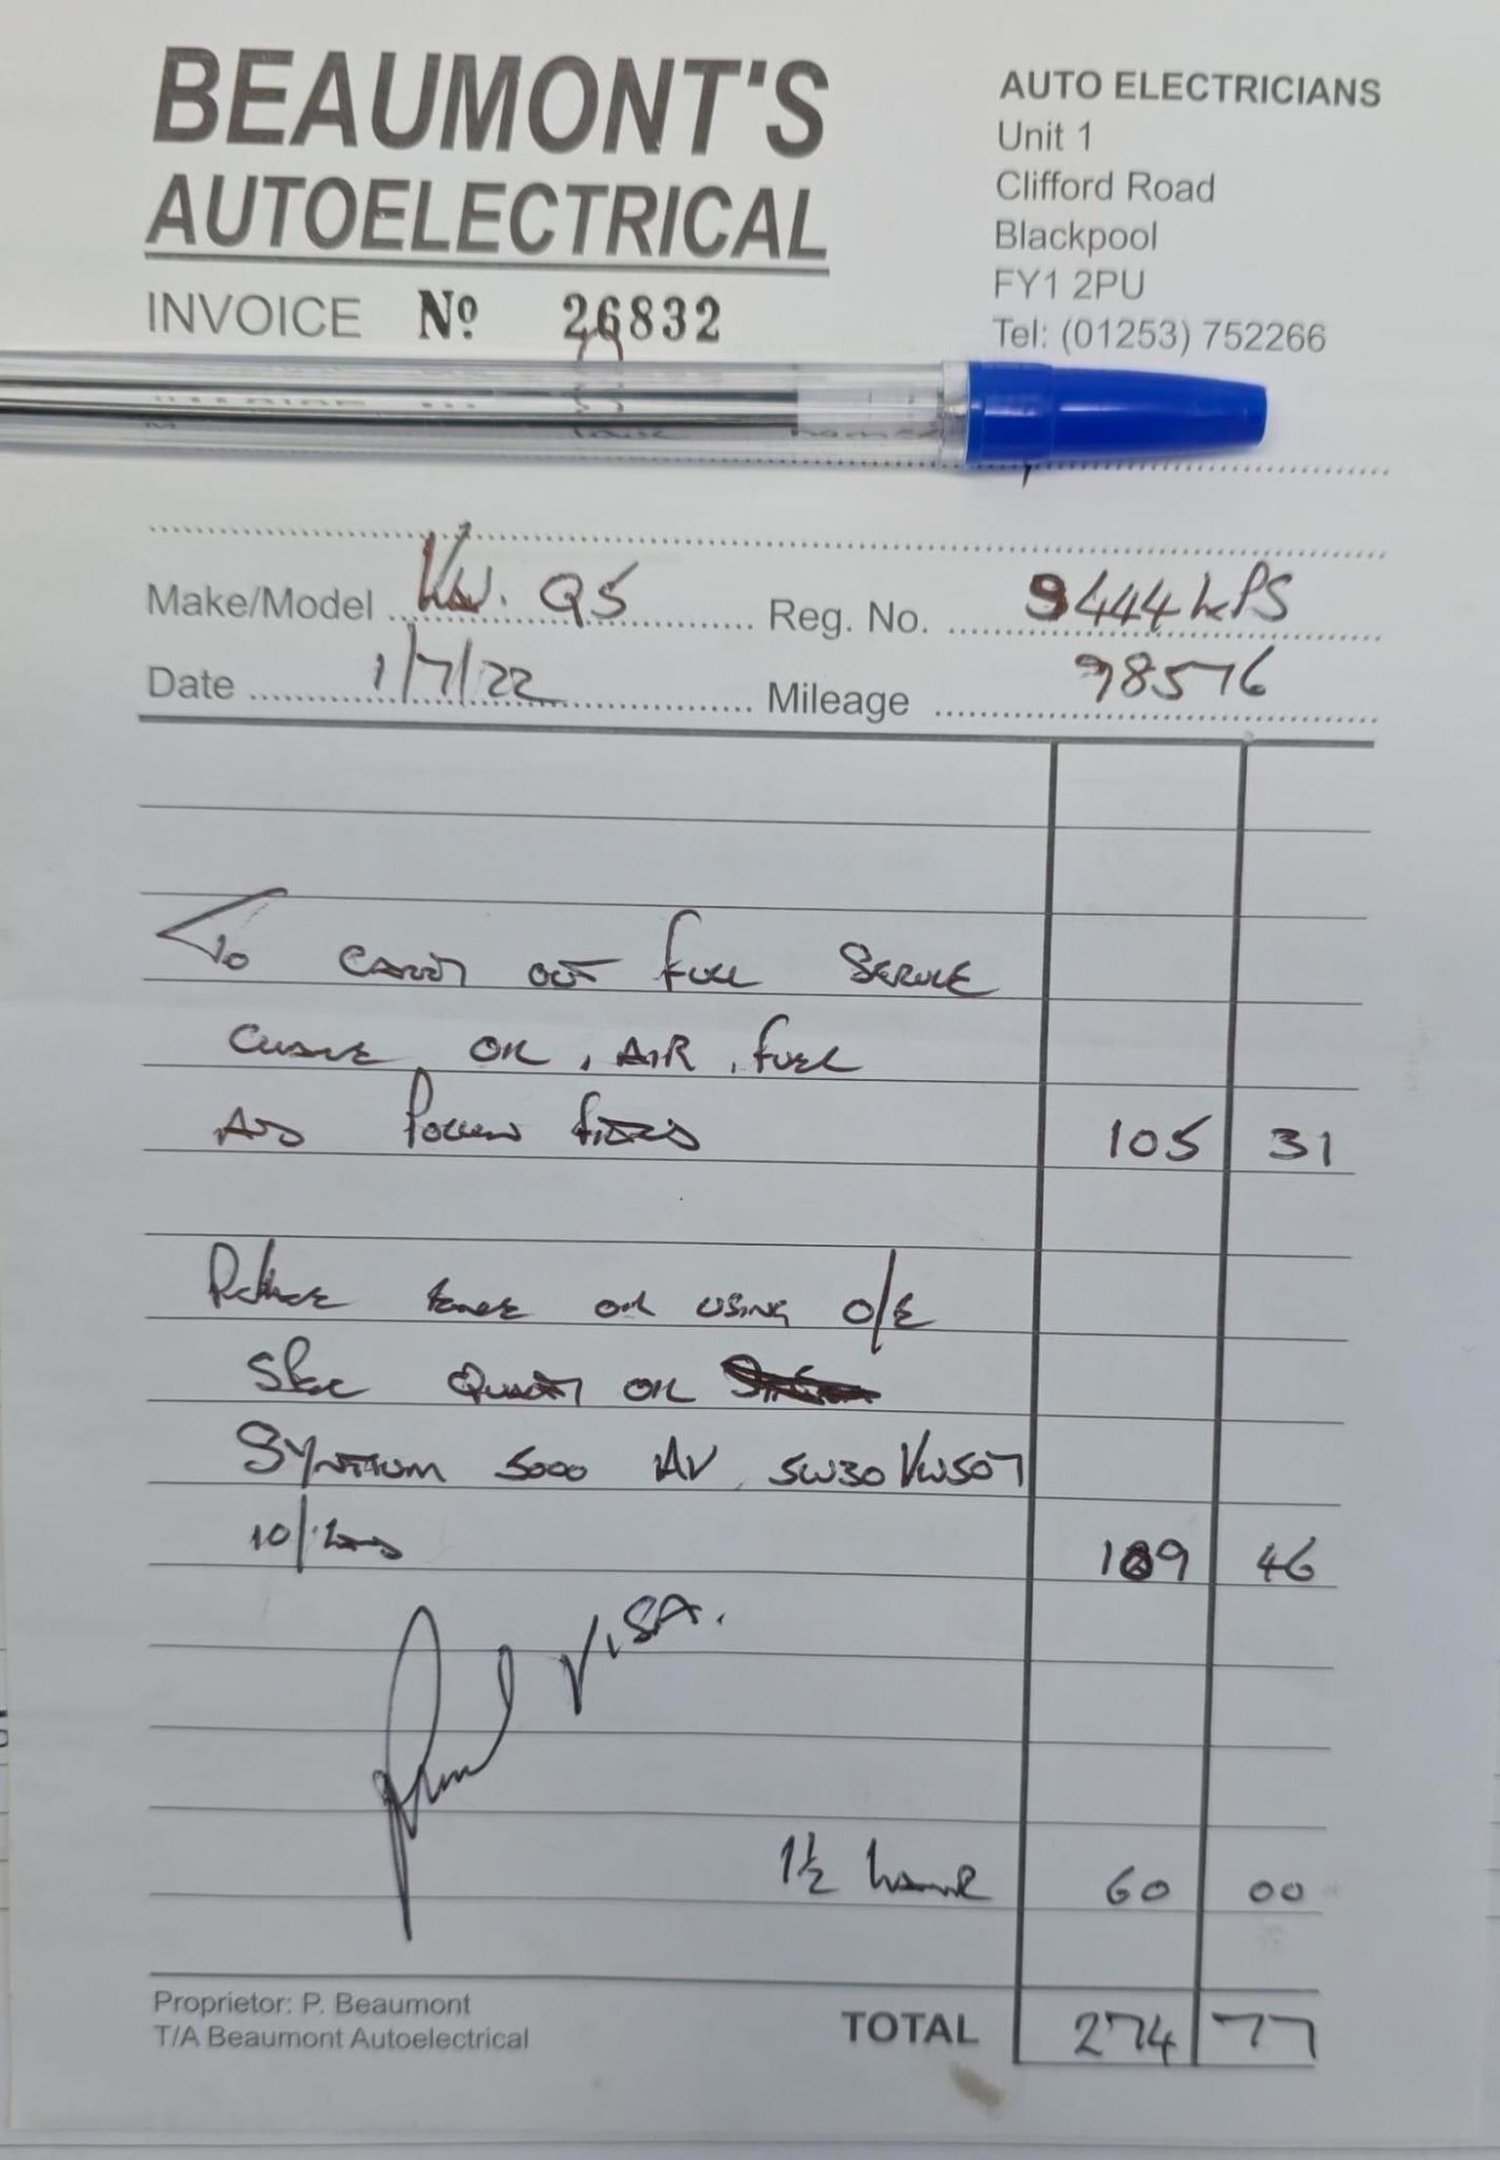 BEAUMONT'S
AUTOELECTRICAL
INVOICE Nº 26832
AUTO ELECTRICIANS
Unit 1
Clifford Road
Blackpool
FY1 2PU
Tel: (01253) 752266
Make/Model Q5 Reg. No.
Date 1/7/22 Mileage 98576
To CARRY OUT FULL SERVICE
OIL, AIR, FUEL
AND POLLEN FILTERS 105 31
ENGINE OIL USING O/E
SPEC QUALITY OIL
SYNTIUM 5000 AV 5W30 VW507
10/ 46
VISA.
1½ 60 00
Proprietor: P. Beaumont
T/A Beaumont Autoelectrical
TOTAL 274 77